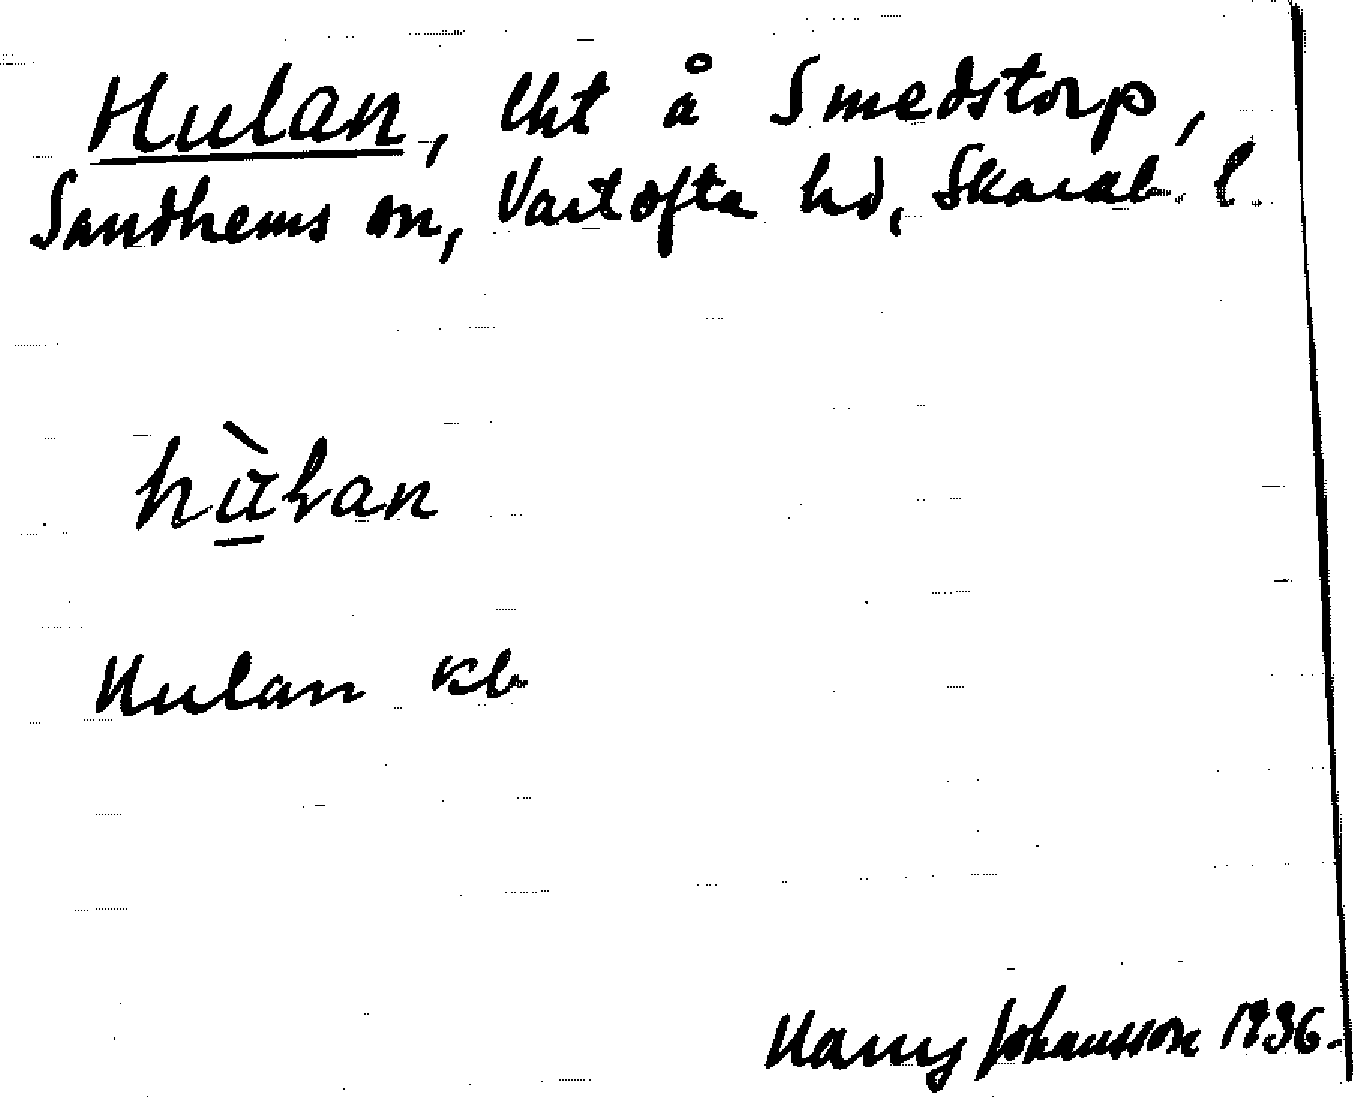 Hulan, lht å Smedstorp,
Sandhems sn, Vartofta hd, Skarab. l
hùlan
Hulan kb
Harry Johansson 1936.